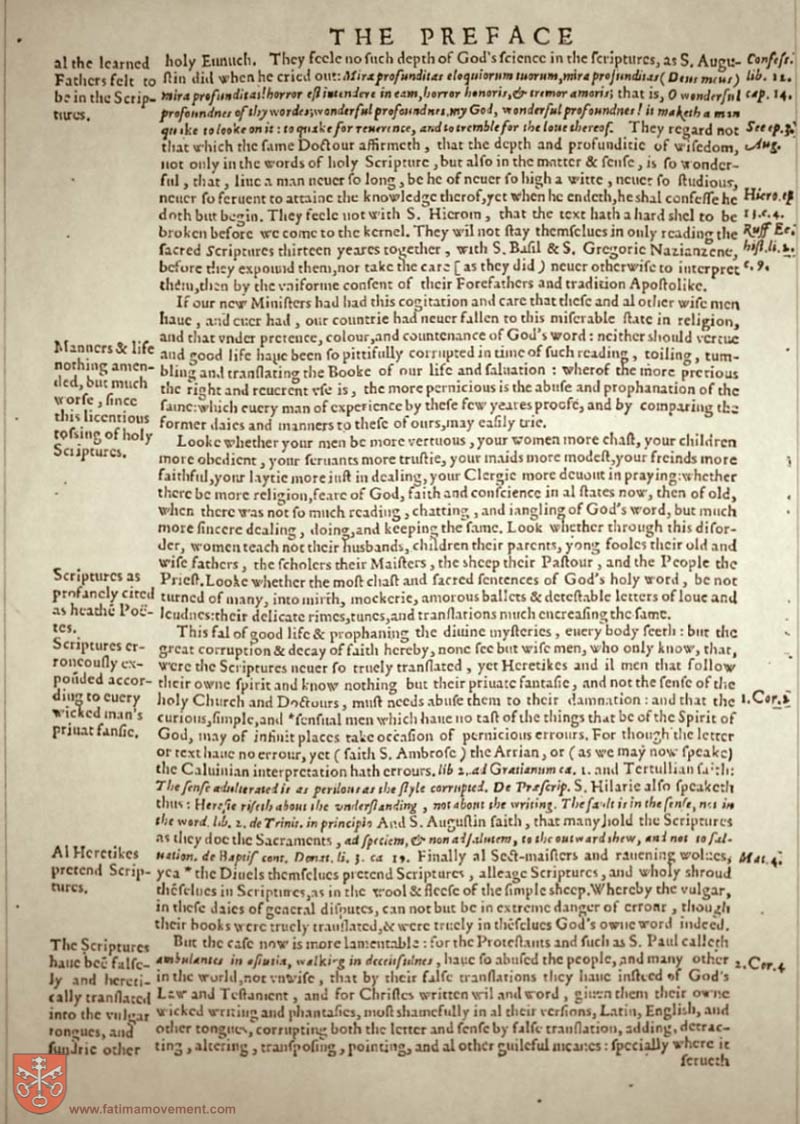 THE PREFACE
al the learned
Fathers felt to
be in the Scrip-
tures.
holy Eunuch. They feele no ſuch depth of God's ſcience in the ſcriptures, as S. Augu-
ſtin did when he cried out: Mira profunditas eloquiorum tuorum, mira profunditas (Deus meus)
mira profunditas! horror eſt intendere in eam, horror honoris, & tremor amoris; that is, O wonderful
profoundnes of thy wordes; wonderful profoundnes, my God, wonderful profoundnes! it maketh a man
quake to looke on it: to quake for reuerence, and to tremble for the loue thereof. They regard not
that which the ſame Doctour affirmeth, that the depth and profunditie of wiſedom,
not only in the words of holy Scripture, but alſo in the matter & ſenſe, is ſo wonder-
ful, that, liue a man neuer ſo long, be he of neuer ſo high a witte, neuer ſo ſtudious,
neuer ſo feruent to attaine the knowledge therof, yet when he endeth, he shal confeſſe he
doth but begin. They feele not with S. Hierom, that the text hath a hard shel to be
broken before we come to the kernel. They wil not ſtay themſelues in only reading the
ſacred Scriptures thirteen yeares together, with S. Baſil & S. Gregorie Nazianzene,
before they expound them, nor take the care [as they did) neuer otherwiſe to interpret
thẽm, then by the vniforme conſent of their Forefathers and tradition Apoſtolike.
Confeſſ.
lib. 12.
cap. 14.
See ep. 3.
Aug.
Hiero. ep
13. c. 4.
Ruff Ec.
hiſt. li. 2.
c. 9.
If our new Miniſters had had this cogitation and care that theſe and al other wiſe men
haue, and euer had, our countrie had neuer fallen to this miſerable ſtate in religion,
and that vnder pretence, colour, and countenance of God's word: neither should vertue
and good life haue been ſo pittifully corrupted in time of ſuch reading, toiling, tum-
bling and tranſlating the Booke of our life and ſaluation: wherof the more pretious
the right and reuerent vſe is, the more pernicious is the abuſe and prophanation of the
ſame: which euery man of experience by theſe few yeares proofe, and by comparing the
former daies and manners to theſe of ours, may eaſily trie.
Manners & life
nothing amen-
ded, but much
worſe, ſince
this licentious
toſsing of holy
Scriptures.
Looke whether your men be more vertuous, your women more chaſt, your children
more obedient, your ſeruants more truſtie, your maids more modeſt, your freinds more
faithful, your laytie more iuſt in dealing, your Clergie more deuout in praying: whether
there be more religion, feare of God, faith and conſcience in al ſtates now, then of old,
when there was not ſo much reading, chatting, and iangling of God's word, but much
more ſincere dealing, doing, and keeping the ſame. Look whether through this diſor-
der, women teach not their husbands, children their parents, yong fooles their old and
wiſe fathers, the ſcholers their Maiſters, the sheep their Paſtour, and the People the
Prieſt. Looke whether the moſt chaſt and ſacred ſentences of God's holy word, be not
turned of many, into mirth, mockerie, amorous ballets & deteſtable letters of loue and
leudnes: their delicate rimes, tunes, and tranſlations much encreaſing the ſame.
Scriptures as
profanely cited
as heathẽ Poë-
tes.
This fal of good life & prophaning the diuine myſteries, euery body ſeeth: but the
great corruption & decay of faith hereby, none ſee but wiſe men, who only know, that,
were the Scriptures neuer ſo truely tranſlated, yet Heretikes and il men that follow
their owne ſpirit and know nothing but their priuate fantaſie, and not the ſenſe of the
holy Church and Doctours, muſt needs abuſe them to their damnation: and that the
curious, ſimple, and *ſenſual men which haue no taſt of the things that be of the Spirit of
God, may of infinit places take occaſion of pernicious errours. For though the letter
or text haue no errour, yet (ſaith S. Ambroſe) the Arrian, or (as we may now ſpeake)
the Caluinian interpretation hath errours. lib 2. ad Gratianum ca. 1. and Tertullian ſaith:
The ſenſe adulterated is as perilous as the ſtyle corrupted. De Praſcrip. S. Hilarie alſo ſpeaketh
thus: Hereſie riſeth about the vnderſtanding, not about the writing. The fault is in the ſenſe, not in
the word. lib. 2. de Trinit. in principio And S. Auguſtin ſaith, that many hold the Scriptures
as they doe the Sacraments, ad ſpeciem, & non ad ſalutem, to the outward shew, and not to ſal-
uation. de Baptiſ cont. Donat. li. 3. ca 19. Finally al Sect-maiſters and rauening wolues,
yea * the Diuels themſelues pretend Scriptures, alleage Scriptures, and wholy shroud
thẽſelues in Scriptures, as in the wool & fleeſe of the ſimple sheep. Whereby the vulgar,
in theſe daies of general diſputes, can not but be in extreme danger of errour, though
their books were truely tranſlated, & were truely in thẽſelues God's owne word indeed.
Scriptures er-
roneouſly ex-
põuded accor-
ding to euery
wicked man's
priuat fanſie.
1. Cor. 2
Al Heretikes
pretend Scrip-
tures.
Mat. 4.
But the caſe now is more lamentable: for the Proteſtants and ſuch as S. Paul calleth
ambulantes in aſtutia, walking in deceitfulnes, haue ſo abuſed the people, and many other
in the world, not vnwiſe, that by their falſe tranſlations they haue inſteed of God's
Law and Teſtament, and for Chriſtes written wil and word, giuen them their owne
wicked writing and phantaſies, moſt shamefully in al their verſions, Latin, English, and
other tongues, corrupting both the letter and ſenſe by falſe tranſlation, adding, detrac-
ting, altering, tranſpoſing, pointing, and al other guileful meanes: ſpecially where it
ſerueth
The Scriptures
haue beẽ falſe-
ly and hereti-
cally tranſlated
into the vulgar
tongues, and
ſundrie other
2. Cor. 4
www.fatimamovement.com